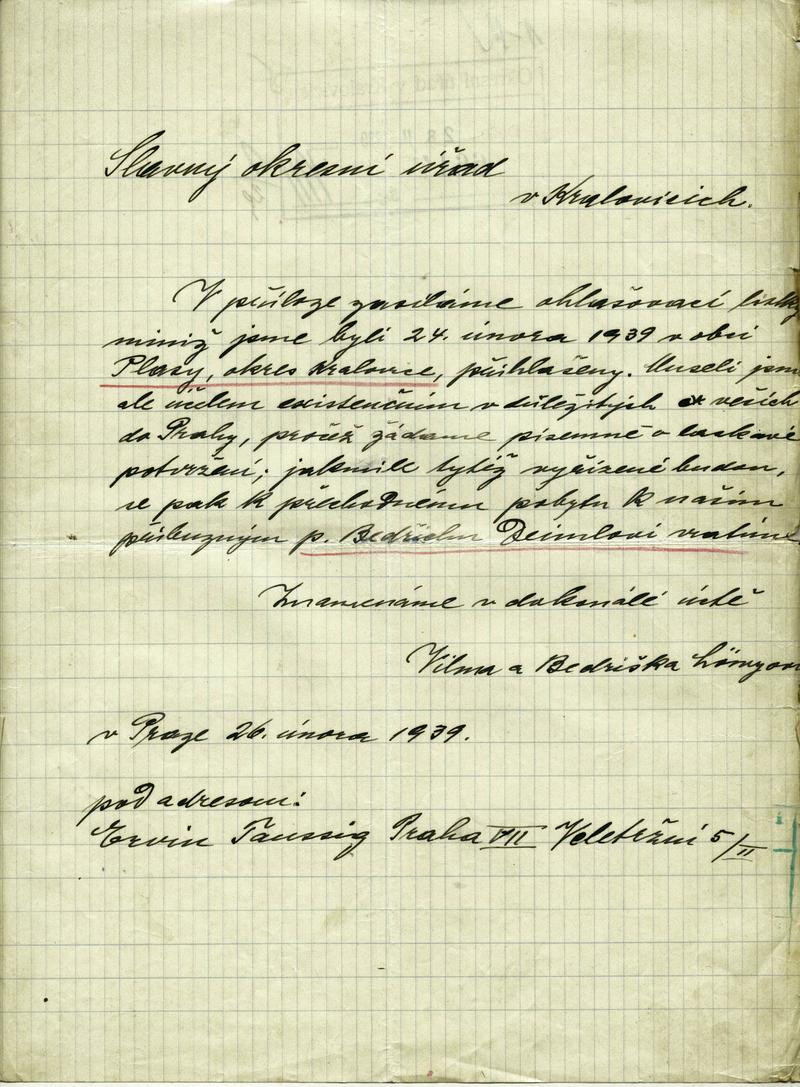 Slavný okresní úřad
v Kralovicích.
V příloze zasíláme ohlašovací lístky
nimiž jsme byli 24. února 1939 v obci
Plasy, okres Kralovice, přihlášeny. Museli jsme
ale účelem existenčním v důležitých věcích
do Prahy, pročež žádáme písemně o laskavé
potvrzení; jakmile tytéž vyřízené budou,
se pak k přechodnému pobytu k našim
příbuzným p. Bedřichu Deimlovi vrátíme
Znamenáme v dokonalé úctě
Vilma a Bedriška
v Praze 26. února 1939.
pod adresou:
Ervin Taussig Praha VII Veletržní 5/II